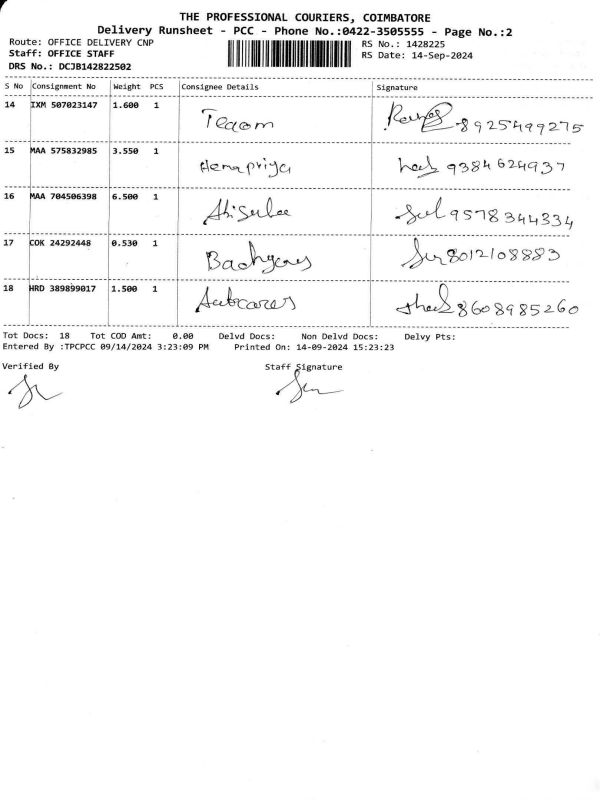 THE PROFESSIONAL COURIERS, COIMBATORE
Delivery Runsheet - PCC - Phone No.:0422-3505555 - Page No.:2
Route: OFFICE DELIVERY CNP RS No.: 1428225
Staff: OFFICE STAFF RS Date: 14-Sep-2024
DRS No.: DCJB142822502
S No Consignment No Weight PCS Consignee Details Signature
14 IXM 507023147 1.600 1 Teaom 8925499275
15 MAA 575832985 3.550 1 Hemapriya 9384624937
16 MAA 704506398 6.500 1 9578344334
17 COK 24292448 0.530 1 8012108883
18 HRD 389899017 1.500 1 Autocares 8608985260
Tot Docs: 18 Tot COD Amt: 0.00 Delvd Docs: Non Delvd Docs: Delvy Pts:
Entered By :TPCPCC 09/14/2024 3:23:09 PM Printed On: 14-09-2024 15:23:23
Verified By Staff Signature